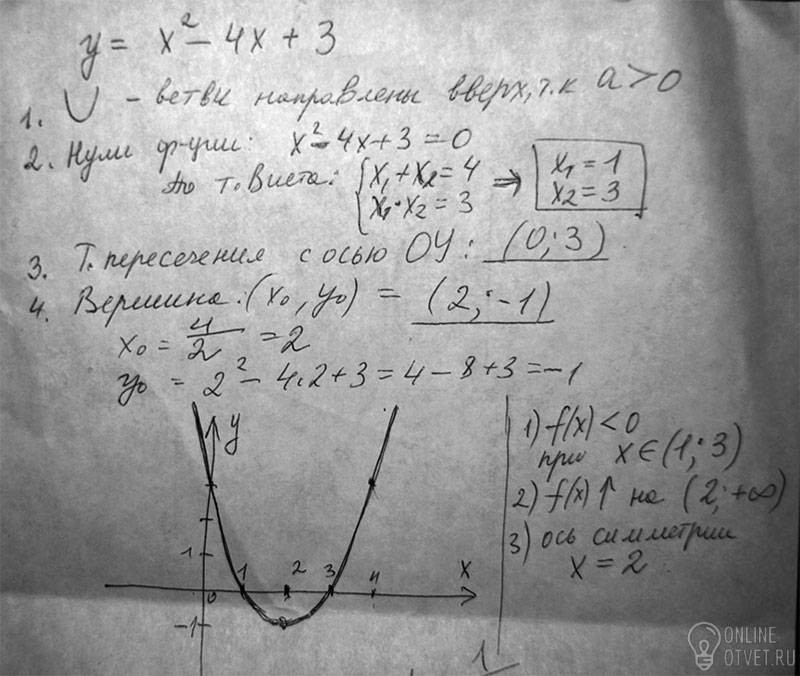 y = x² - 4x + 3
1. ∪ - ветви направлены вверх, т.к a > 0
2. Нули ф-ции: x² - 4x + 3 = 0
По т. Виета: { x₁ + x₂ = 4 ⇒ x₁ = 1
x₁ · x₂ = 3 x₂ = 3
3. Т. пересечения с осью OY: (0; 3)
4. Вершина: (x₀, y₀) = (2; -1)
x₀ = 4/2 = 2
y₀ = 2² - 4·2 + 3 = 4 - 8 + 3 = -1
y
1
1 2 3 4 x
0
-1
1) f(x) < 0
при x ∈ (1; 3)
2) f(x) ↑ на (2; +∞)
3) ось симметрии
x = 2
1
ONLINE
OTVET.RU